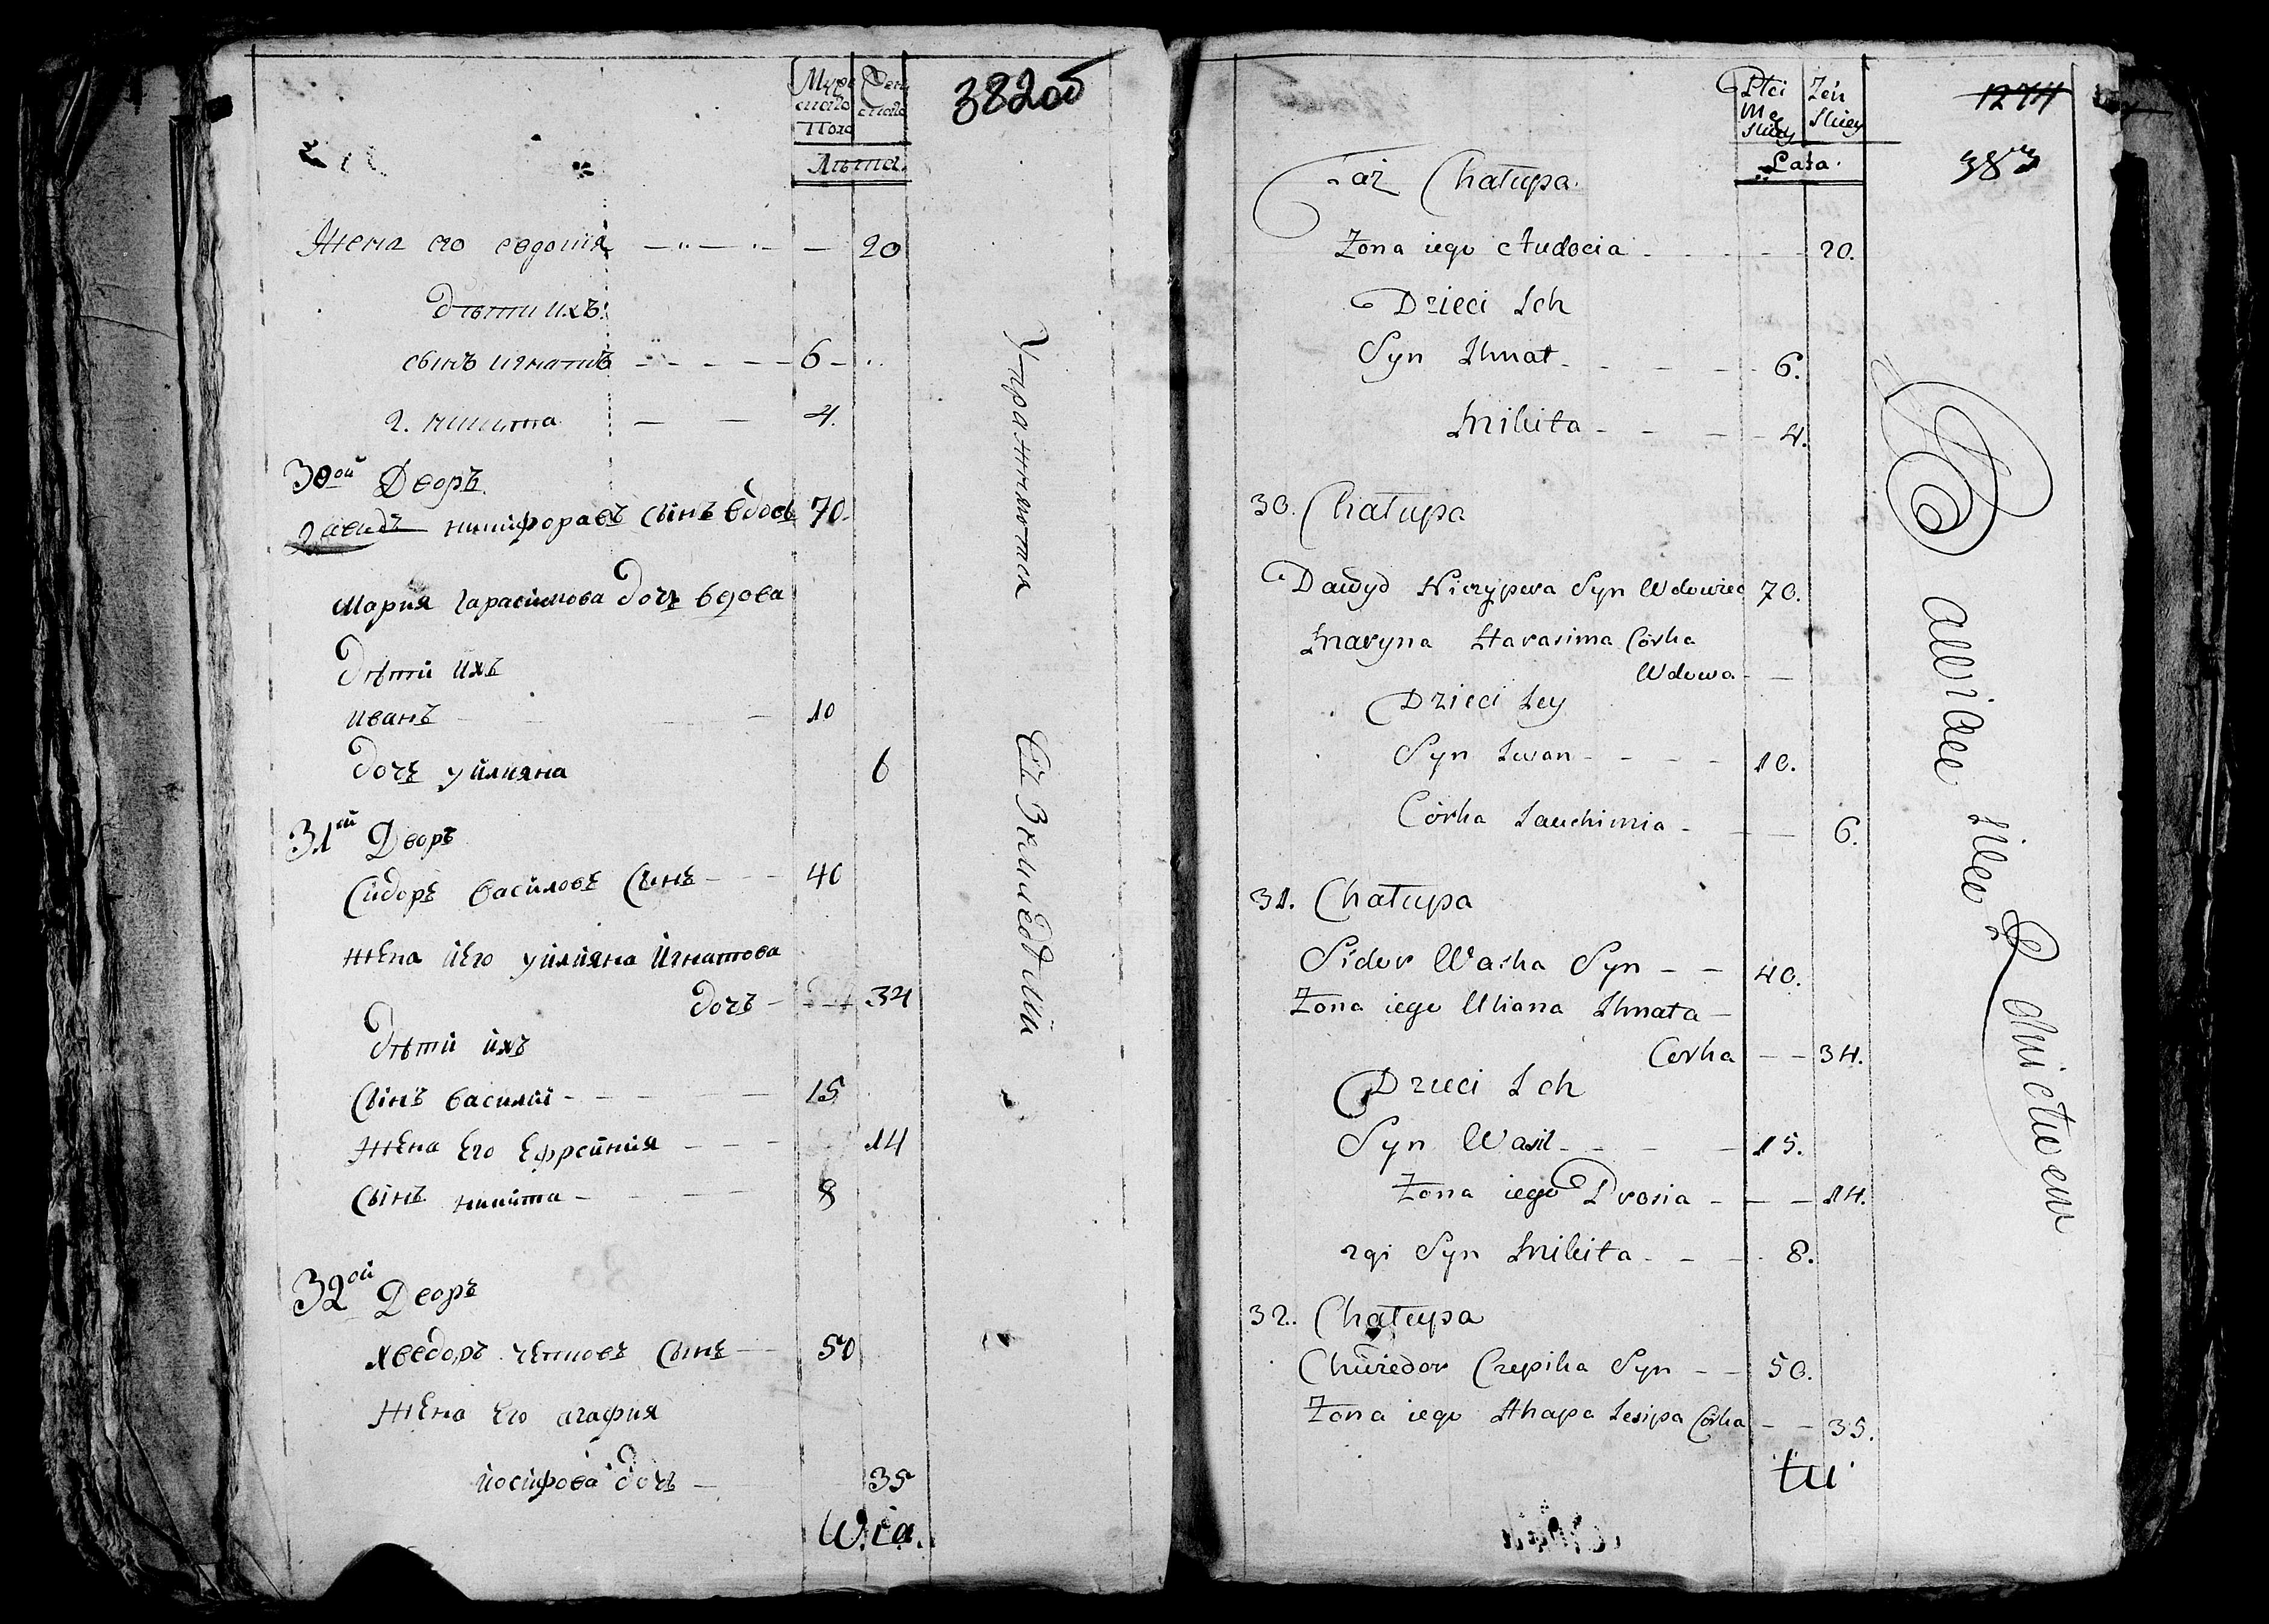 382об
Муже
скаго
Пола
Жен
скаго
Лѣта.
Жена его евдокія — — — 20
дѣти ихъ
сынъ игнатъ - - - - 6
2. никита — — 4.
30ой Дворъ
Давидъ никифоравъ сынъ вдовъ 70.
Мария гарасимова дочь вдова
дѣти ихъ
иванъ - - - 10
дочь уйлияна 6
31ый Дворъ
Сидоръ василовъ сынъ - - - 40
жена него уйлияна игнатова
дочъ - 34
дѣти ихъ
Сынъ василій - - - - 15
жена его ефрсиния - - - 14
Сынъ никита - - - - 8
32ой Дворъ
хведоръ сынъ — 50
жена его агафия
иосифова дочъ — 35
W.ca.
Упражняются
въ Земледѣлии
Płci
Mę
skiey
Żeń
skiey
Lata.
1274
383
Taż Chałupa.
Żona iego Audocia - - - - - 20.
Dzieci Ich
Syn Ihnat - - - - 6.
Mikita - - - - 4.
30. Chałupa
Dawyd Niczypora Syn Wdowiec 70.
Maryna Harasima Córka
Wdowa - —
Dzieci Iey
Syn Iwan - - - - 10.
Córka Iauchimia - — — 6.
31. Chałupa
Sidor Waśka Syn - — 40.
Żona iego Uliana Ihnata —
Corka — — 34.
Dzieci Ich
Syn Wasil - - - — 15.
Żona iego Prosia - — — 14.
2gi Syn Mikita - - - 8.
32. Chałupa
Chwiedor Czepika Syn - — 50.
Żona iego Ahapa Iesipa Córka - — 35.
tu
Bawiące się Rolnictwem